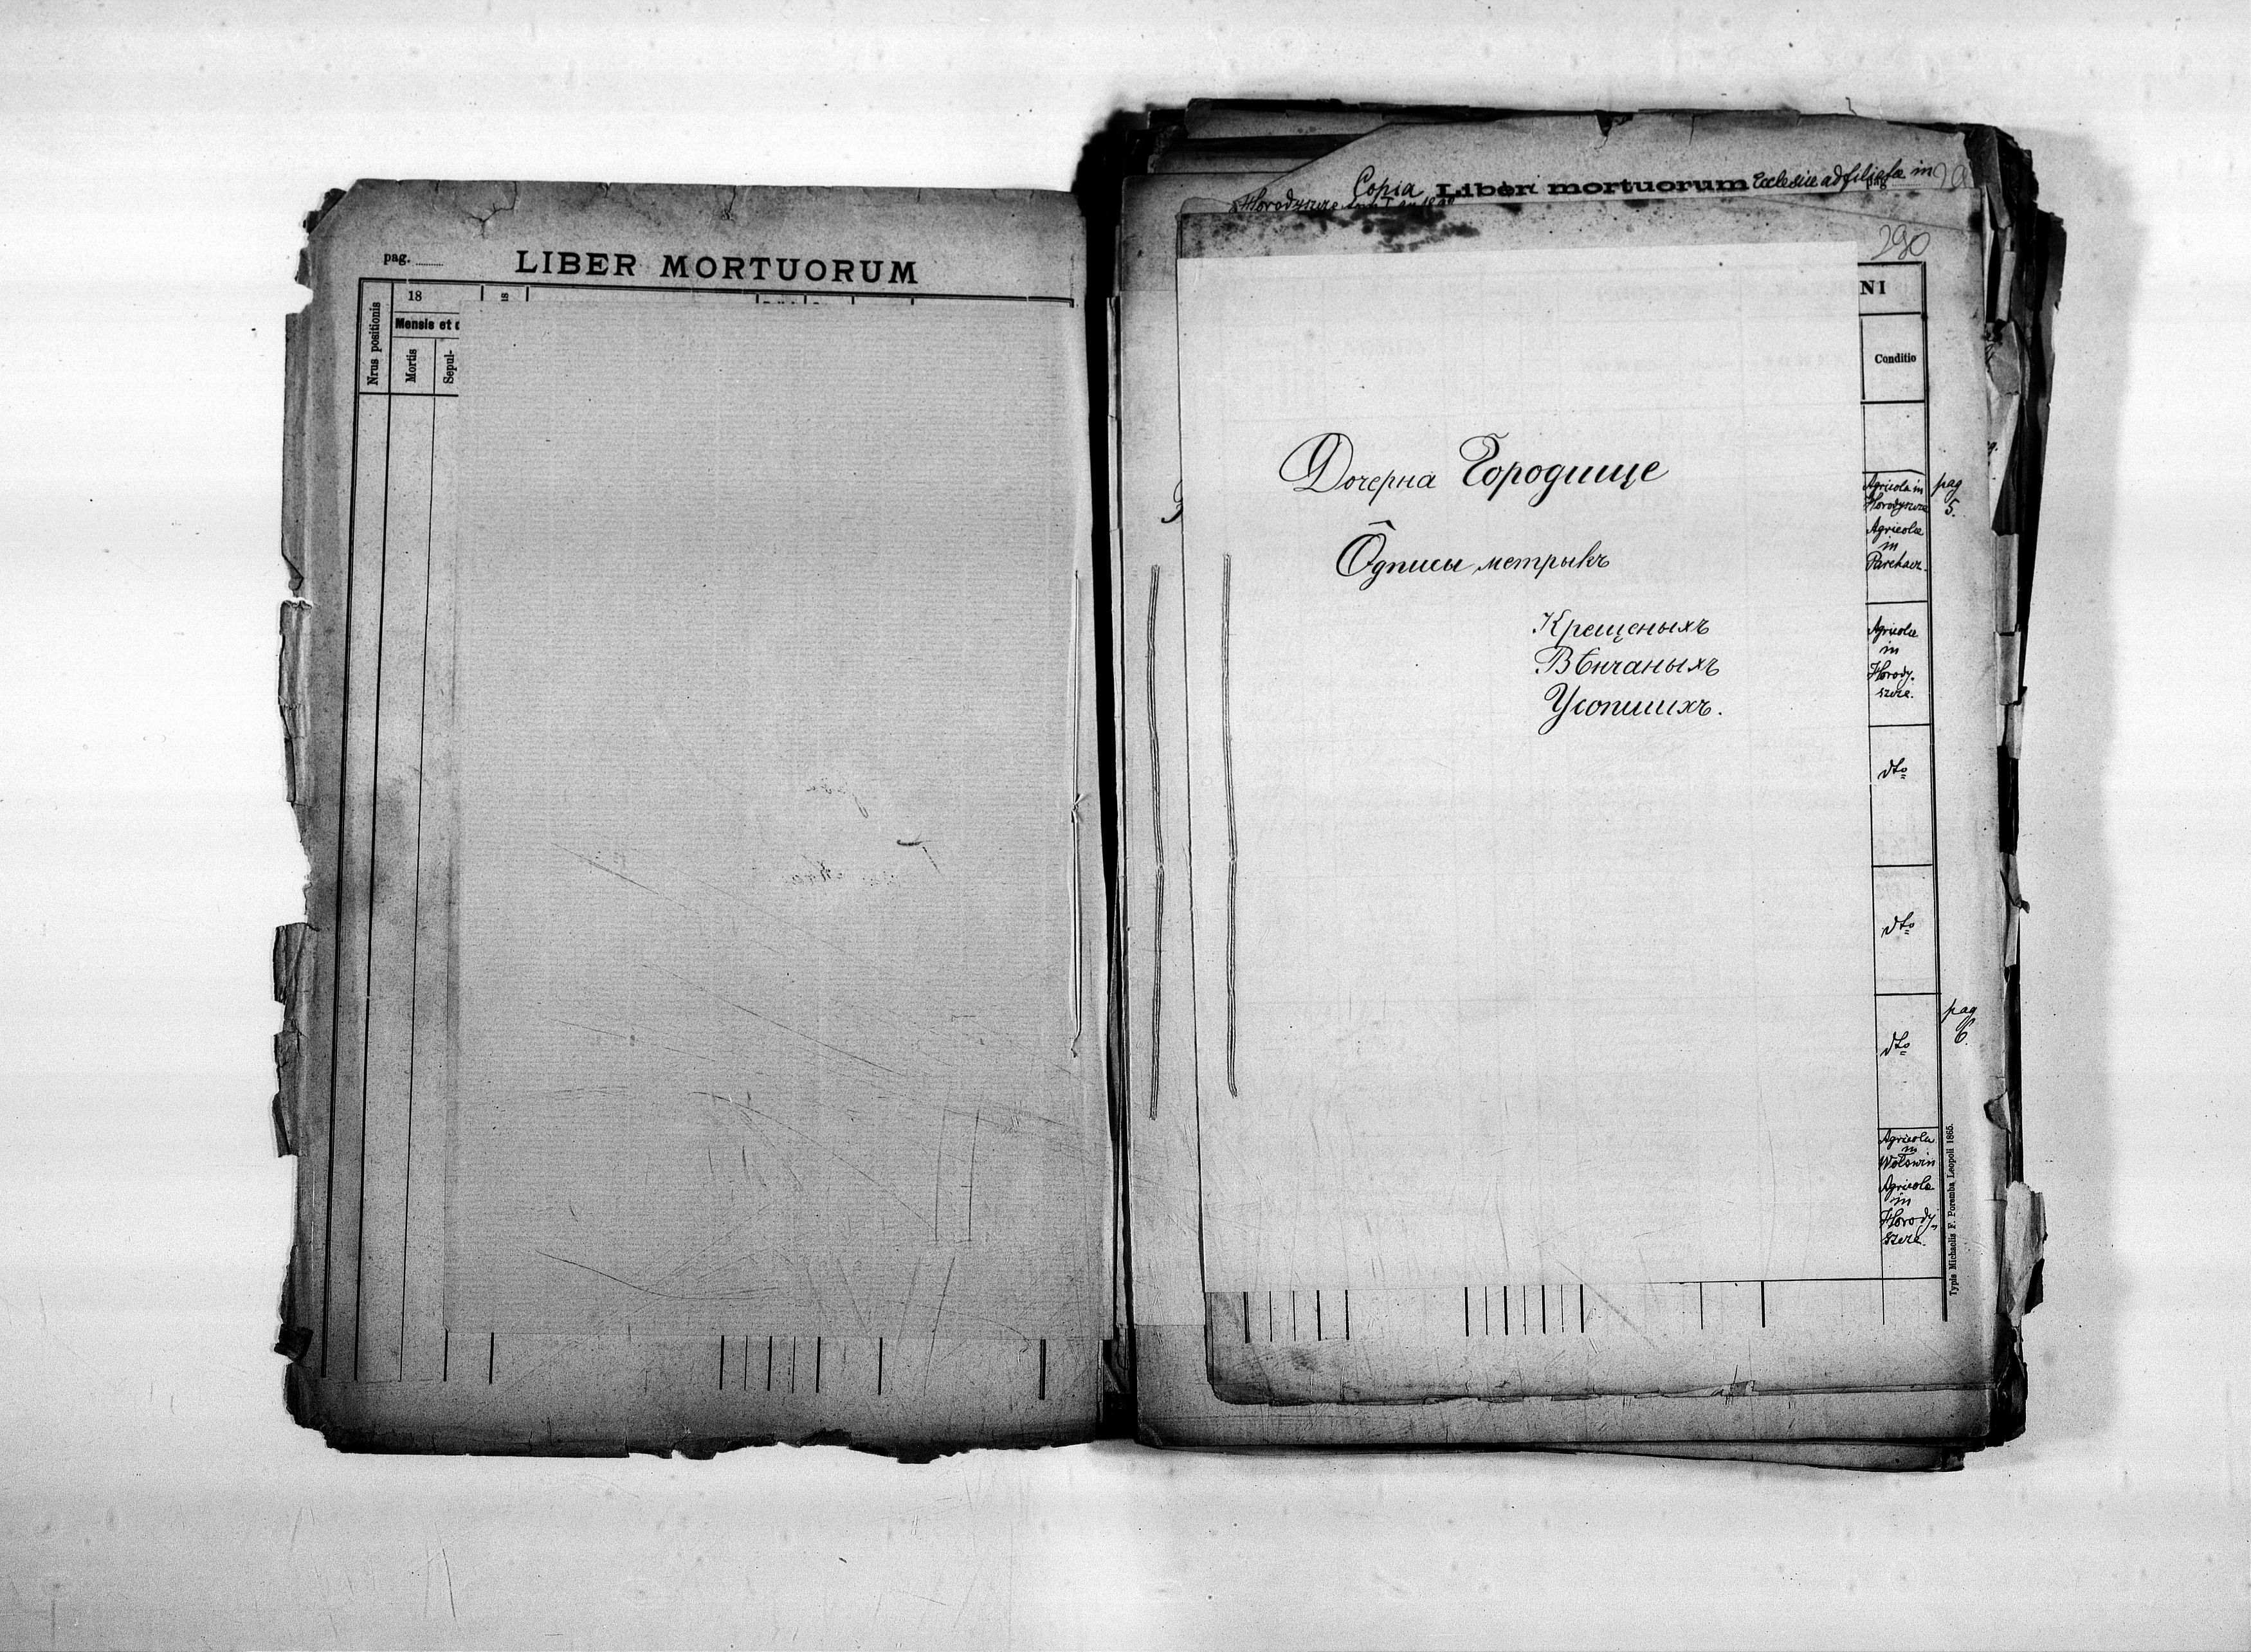 pag.
LIBER MORTUORUM
Nrus positionis
18
Mensis et d
Mortis
Sepul-
Copia Liber mortuorum Ecclesiae ad filiata in
Horodyszcze
290
NI
Conditio
Дочерна Городище
Ôдписы метрыкъ
Крещеныхъ
Вѣнчаныхъ
Усопшихъ.
Agricola in
Horodyszcze
pag
5.
Agricola
in
Parchacz.
Agricola
in
Horody-
szcze.
dto
dto
dto
pag
6.
Agricola
in
Wolswin
Agricola
in
Horody-
szcze.
Typis Michaelis F. Poremba Leopoli 1865.